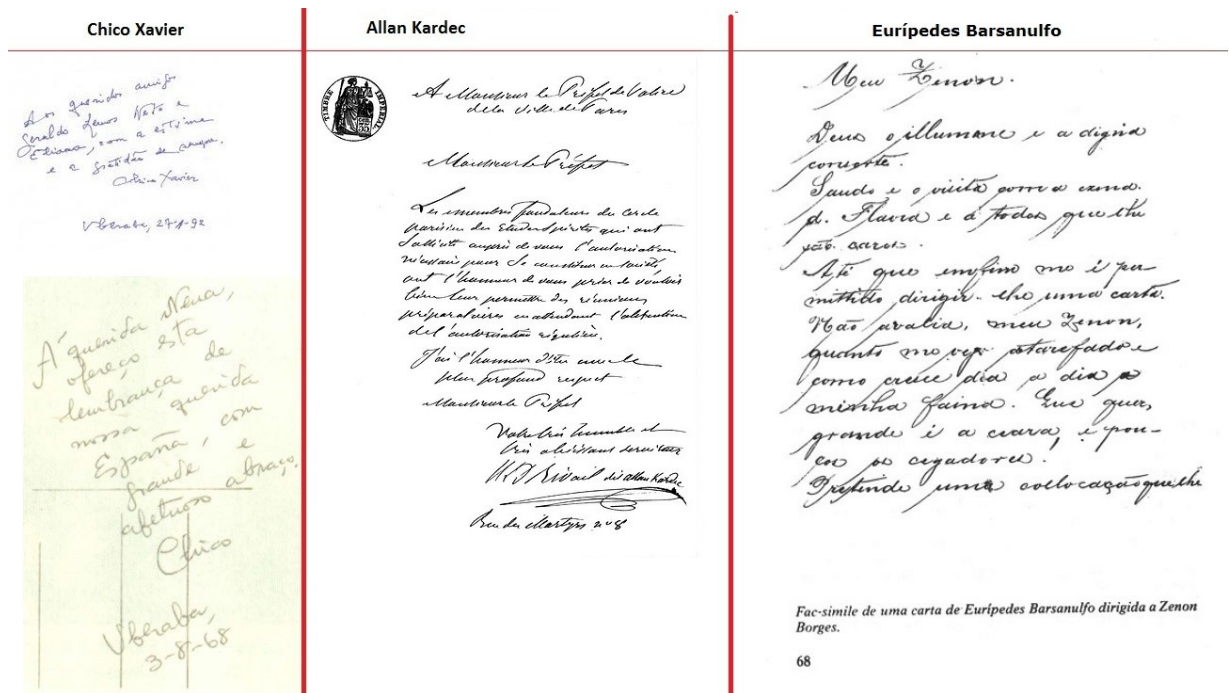 Chico Xavier
Aos queridos amigos
Geraldo Lemos Neto e
Eliana, com a estima
e a gratidão de sempre.
Chico Xavier
Uberaba, 27-1-92
À querida Nena,
ofereço esta
lembrança de
nossa querida
España, com
grande e
afetuoso abraço.
Chico
Uberaba,
3-8-68
Allan Kardec
TIMBRE IMPERIAL
A Monsieur le Préfet de Police
de la Ville de Paris
Monsieur le Préfet
Les membres fondateurs du cercle
parisien des Etudes Spirites qui ont
Sollicité auprès de vous l'autorisation
nécessaire pour Se constituer en Société
ont l'honneur de vous prier de vouloir
bien leur permettre des réunions
préparatoires en attendant l'obtention
de l'autorisation régulière.
J'ai l'honneur d'être avec le
plus profond respect
Monsieur le Préfet
Votre très humble et
très obéissant serviteur
H L D Rivail dit Allan Kardec
Rue des Martyrs n° 8
Eurípedes Barsanulfo
Meu Zenon.
Deus o illumine e a digna
consorte.
Saudo e o visito com a exma.
d. Flavia e a todos que lhe
são caros.
Até que emfim me é per
mittido dirigir-lhe uma carta.
Não avalia, meu Zenon,
quanto me vejo atarefado e
como cresce dia a dia a
minha faina. Que quer,
grande é a ceara, e pou-
cos os cegadores!
Pretende uma collocação que lhe
Fac-simile de uma carta de Eurípedes Barsanulfo dirigida a Zenon
Borges.
68